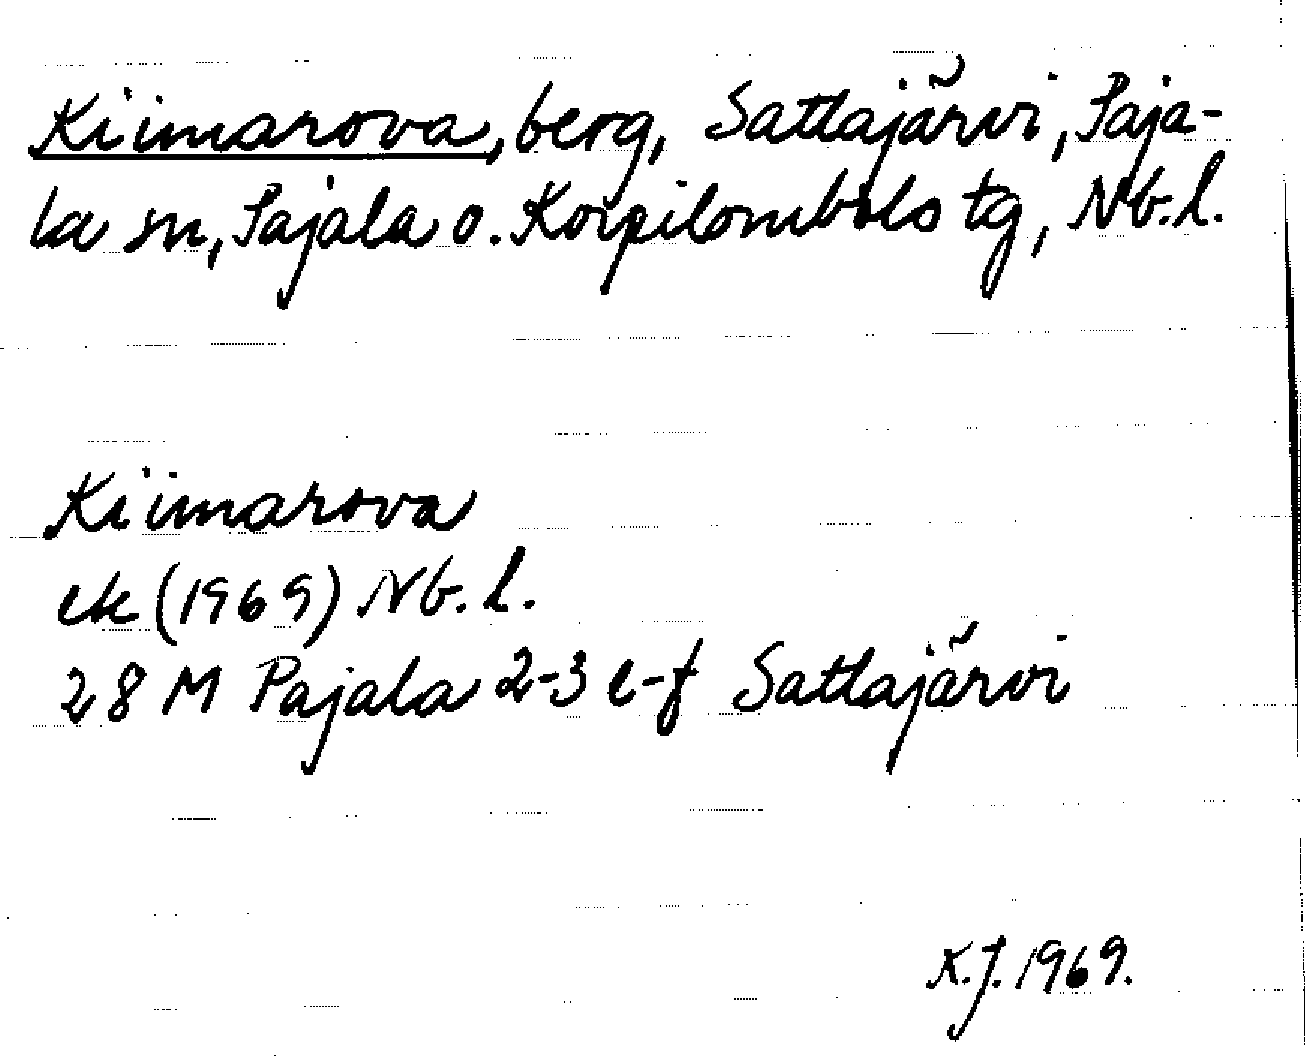 Kiimarova, berg, Sattajärvi, Paja-
la sn, Pajala o. Korpilombolo tg, Nb. l.
Kiimarova
ek (1969) Nb. l.
28 M Pajala 2-3 e-f Sattajärvi
K.J. 1969.